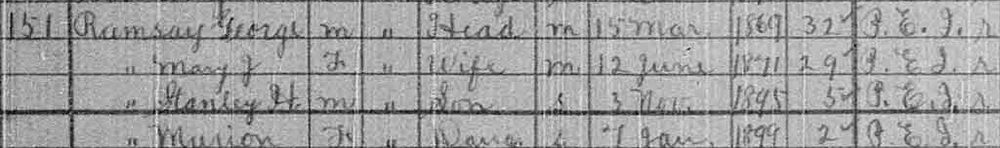 151 Ramsay George m " Head m 15 Mar. 1869 32 P. E. I. r
" Mary J F " Wife m 12 June 1871 29 P. E. I. r
" Stanley H. m " Son s 3 Nov. 1895 5 P. E. I. r
" Murion F " Daug. s 7 Jan. 1899 2 P. E. I. r